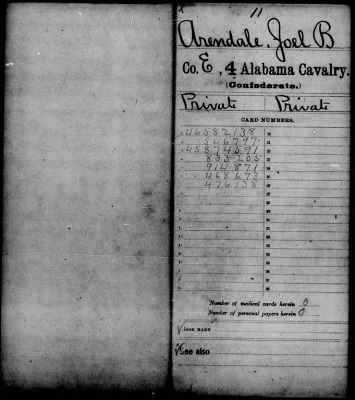 11
Arendale, Joel B
Co. E, 4 Alabama Cavalry.
(Confederate.)
Private Private
CARD NUMBERS.
46582138
546797
45874591
833205
914871
468673
476138
Number of medical cards herein 0
Number of personal papers herein 0
BOOK MARK
See also